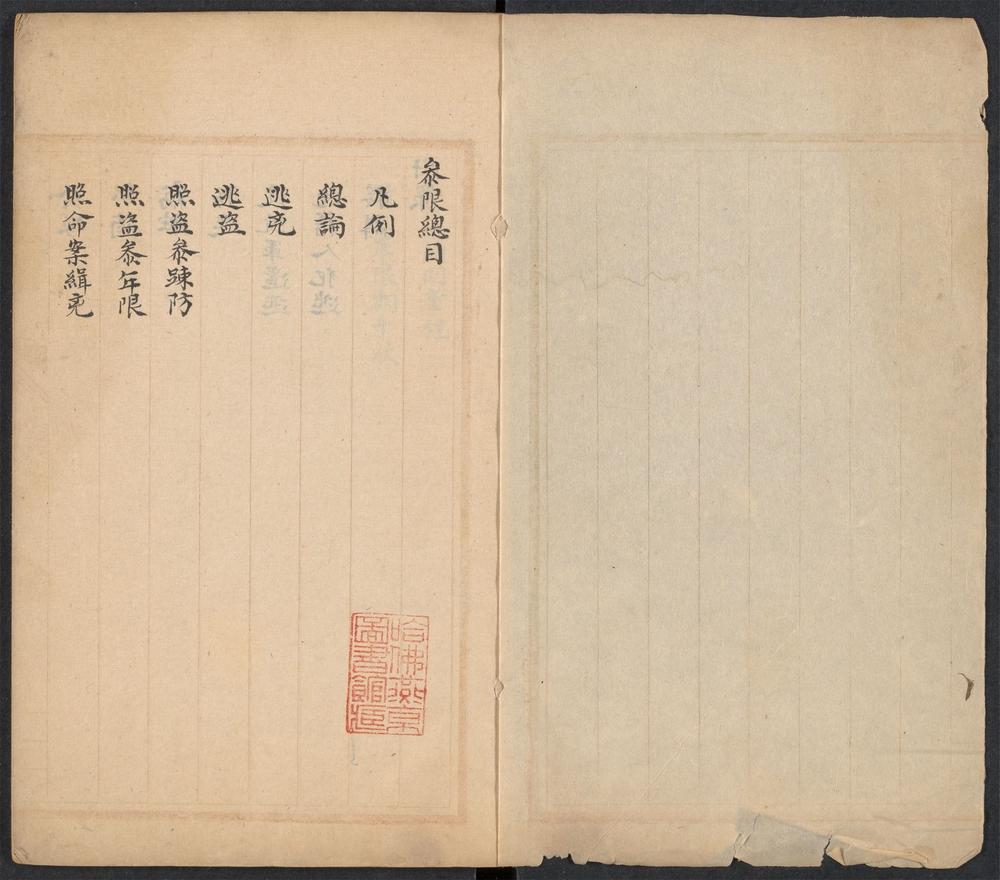 叅限總目
凡例
總論
逃兇
逃盜
照盜叅踈防
照盜叅年限
照命案緝兇
哈佛燕京
圖書館藏